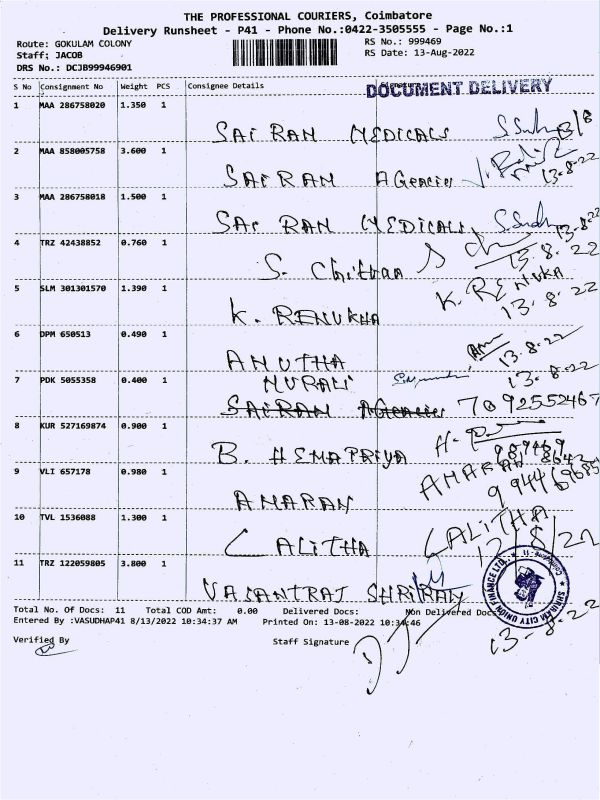 THE PROFESSIONAL COURIERS, Coimbatore
Delivery Runsheet - P41 - Phone No.:0422-3505555 - Page No.:1
Route: GOKULAM COLONY RS No.: 999469
Staff: JACOB RS Date: 13-Aug-2022
DRS No.: DCJB99946901
S No Consignment No Weight PCS Consignee Details DOCUMENT DELIVERY
1 MAA 286758020 1.350 1
SAI RAM MEDICALS
2 MAA 858005758 3.600 1
SAI RAM AGencies 13-8-22
3 MAA 286758018 1.500 1
SAI RAM MEDICALS 13-8-22
4 TRZ 42438852 0.760 1 13.8.22
S. Chithra
5 SLM 301301570 1.390 1 K. RENUKA
13.8.22
K. RENUKHA
6 DPM 650513 0.490 1 13.8.22
ANUTHA
7 PDK 5055358 0.400 1 MURALI 13.8.22
SAIRAM AGencies
8 KUR 527169874 0.900 1
B. HEMAPRIYA
9 VLI 657178 0.980 1 AMARAN
AMARAN
10 TVL 1536088 1.300 1 LALITHA
LALITHA
11 TRZ 122059805 3.800 1
VASANTRAJ SHRIRAM
SHRIRAM CITY UNION FINANCE LTD.
Total No. Of Docs: 11 Total COD Amt: 0.00 Delivered Docs: Non Delivered Docs
13-8-22
Entered By :VASUDHAP41 8/13/2022 10:34:37 AM Printed On: 13-08-2022 10:34:46
Verified By Staff Signature